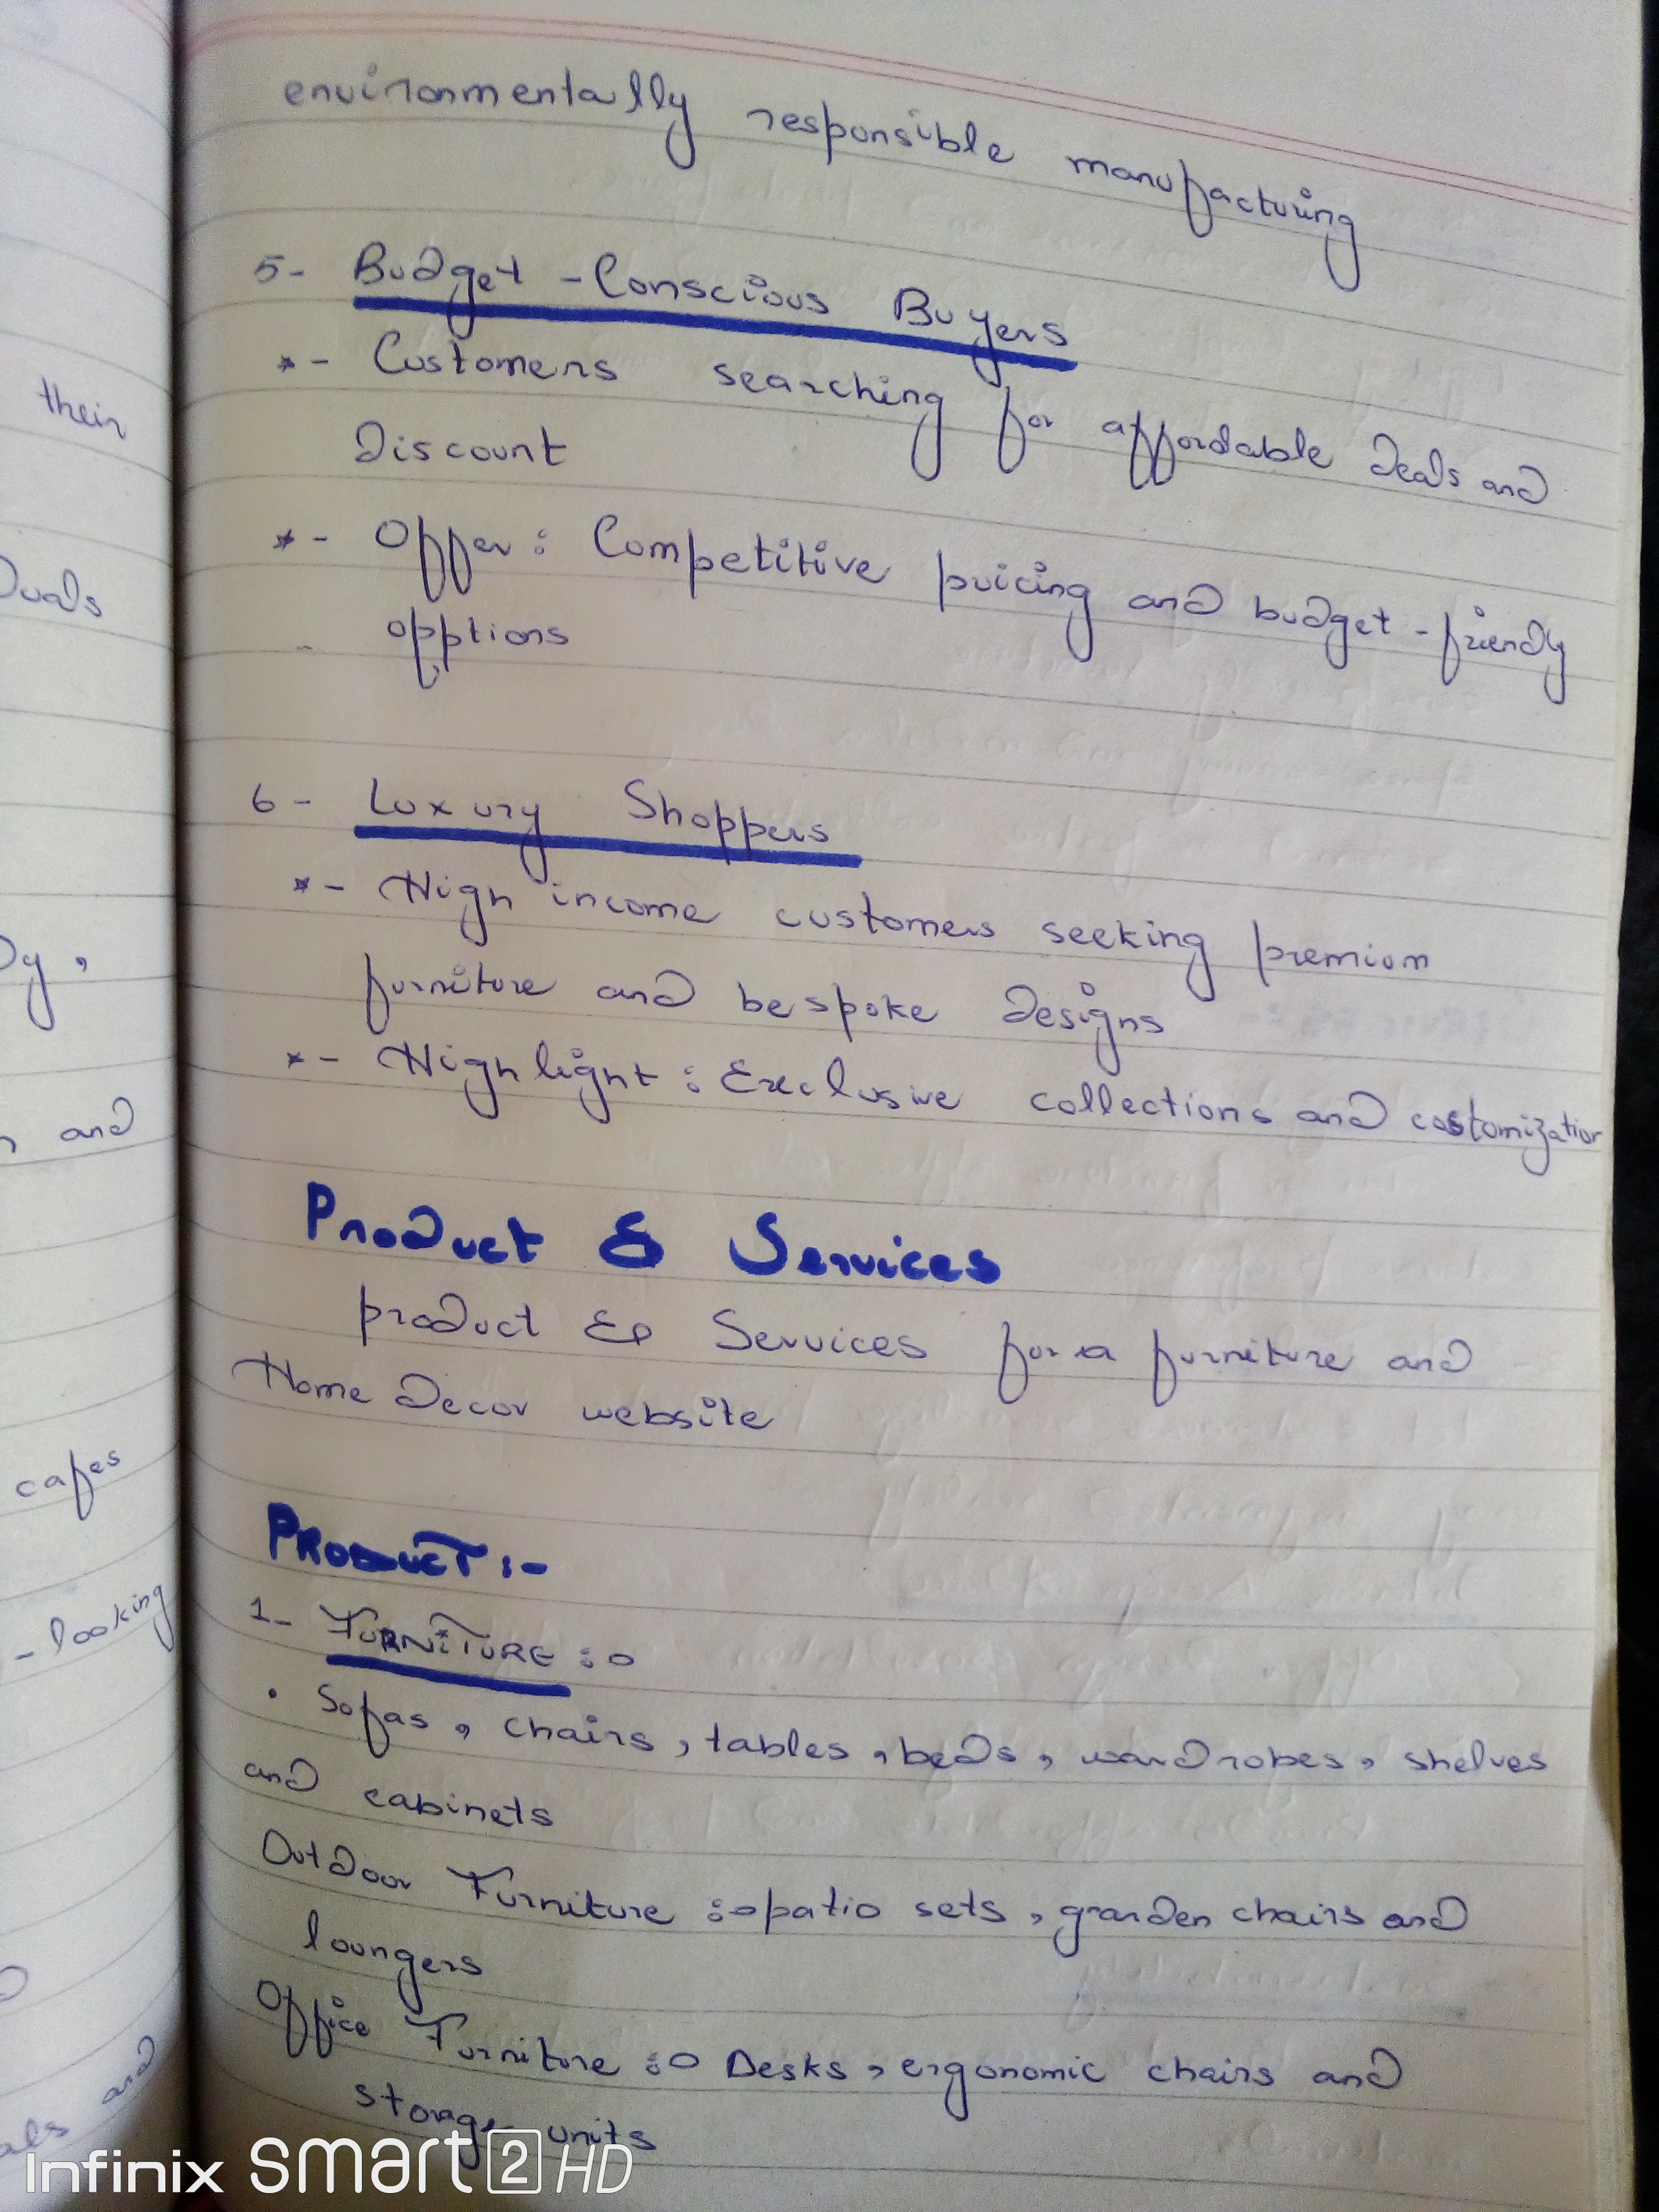 environmentally responsible manufacturing
5- Budget - Conscious Buyers
*- Customers searching for affordable deals and
Discount
*- Offer : Competitive pricing and budget - friendly
opptions
6- Luxury Shoppers
*- High income customers seeking premium
furniture and bespoke designs
*- Highlight : Exclusive collections and costomization
Product & Services
product & Services for a furniture and
Home Decor website
PRODUCT :-
1- FURNITURE :o
• Sofas , chairs , tables , beds , wardrobes , shelves
and cabinets
Outdoor Furniture :o patio sets , grarden chairs and
loungers
Office Furniture :o Desks , ergonomic chairs and
storage units
their
and
cafes
- looking
and
Infinix smart 2 HD